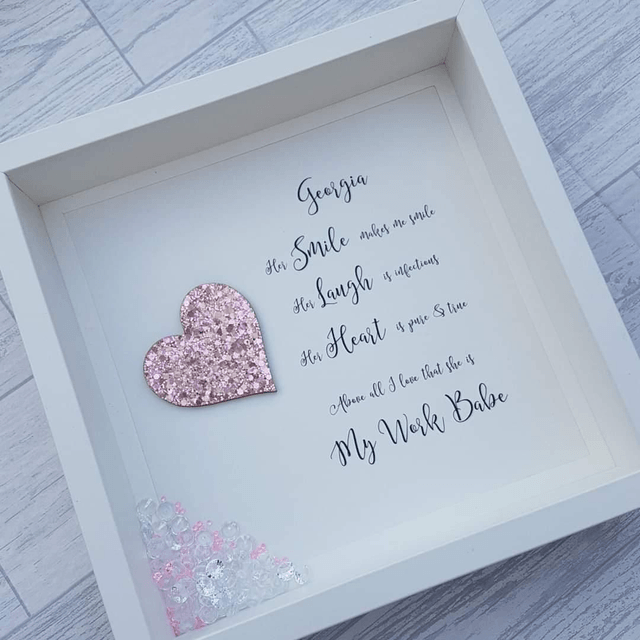 Georgia
Her Smile makes me smile
Her Laugh is infectious
Her Heart is pure & true
Above all I love that she is
My Work Babe